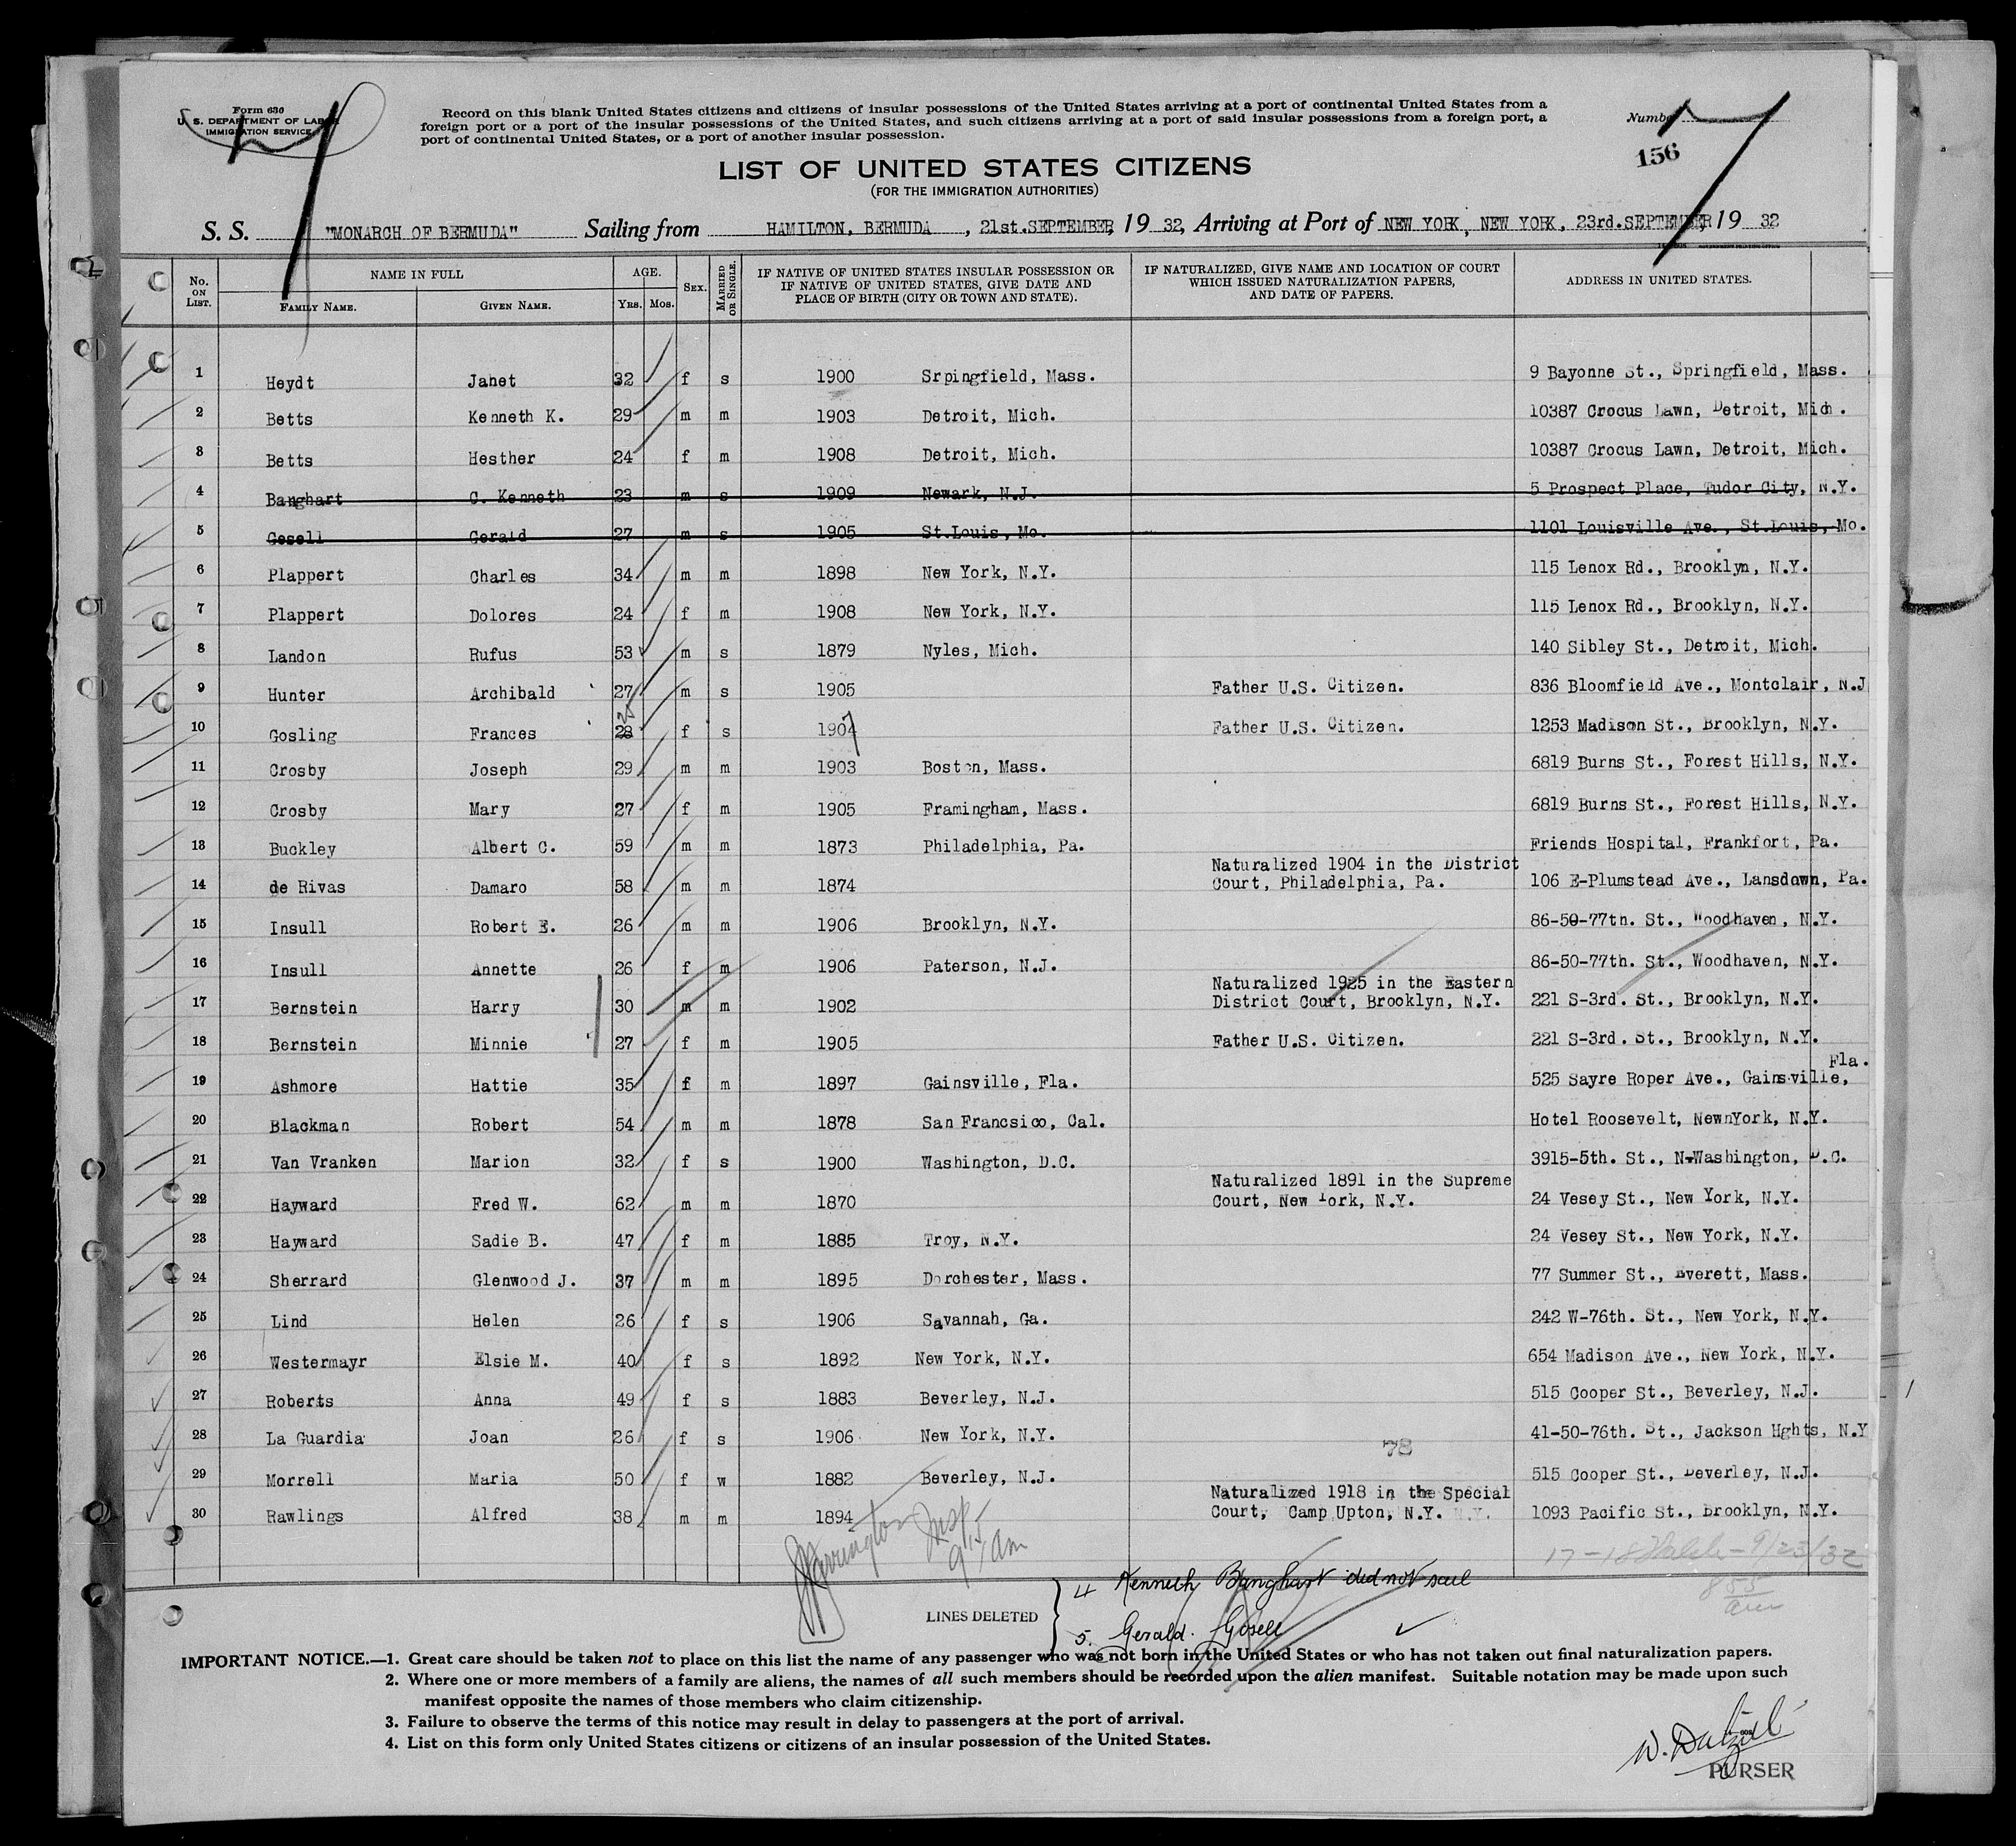 Form 630
U. S. DEPARTMENT OF LABOR
IMMIGRATION SERVICE
Record on this blank United States citizens and citizens of insular possessions of the United States arriving at a port of continental United States from a
foreign port or a port of the insular possessions of the United States, and such citizens arriving at a port of said insular possessions from a foreign port, a
port of continental United States, or a port of another insular possession.
Number
156
LIST OF UNITED STATES CITIZENS
(FOR THE IMMIGRATION AUTHORITIES)
S. S. "MONARCH OF BERMUDA" Sailing from HAMILTON, BERMUDA, 21st.SEPTEMBER, 1932, Arriving at Port of NEW YORK, NEW YORK, 23rd.SEPTEMBER, 1932
No. ON LIST. NAME IN FULL FAMILY NAME. GIVEN NAME. AGE. YRS. MOS. SEX. MARRIED OR SINGLE. IF NATIVE OF UNITED STATES INSULAR POSSESSION OR IF NATIVE OF UNITED STATES, GIVE DATE AND PLACE OF BIRTH (CITY OR TOWN AND STATE). IF NATURALIZED, GIVE NAME AND LOCATION OF COURT WHICH ISSUED NATURALIZATION PAPERS, AND DATE OF PAPERS. ADDRESS IN UNITED STATES.
1 Heydt Janet 32 f s 1900 Srpingfield, Mass. 9 Bayonne St., Springfield, Mass.
2 Betts Kenneth K. 29 m m 1903 Detroit, Mich. 10387 Crocus Lawn, Detroit, Mich.
3 Betts Hesther 24 f m 1908 Detroit, Mich. 10387 Crocus Lawn, Detroit, Mich.
4 Banghart C. Kenneth 23 m s 1909 Newark, N.J. 5 Prospect Place, Tudor City, N.Y.
5 Gosell Gerald 27 m s 1905 St.Louis, Mo. 1101 Louisville Ave., St.Louis, Mo.
6 Plappert Charles 34 m m 1898 New York, N.Y. 115 Lenox Rd., Brooklyn, N.Y.
7 Plappert Dolores 24 f m 1908 New York, N.Y. 115 Lenox Rd., Brooklyn, N.Y.
8 Landon Rufus 53 m s 1879 Nyles, Mich. 140 Sibley St., Detroit, Mich.
9 Hunter Archibald 27 m s 1905 Father U.S. Citizen. 836 Bloomfield Ave., Montclair, N.J
10 Gosling Frances 28 f s 1904 Father U.S. Citizen. 1253 Madison St., Brooklyn, N.Y.
11 Crosby Joseph 29 m m 1903 Boston, Mass. 6819 Burns St., Forest Hills, N.Y.
12 Crosby Mary 27 f m 1905 Framingham, Mass. 6819 Burns St., Forest Hills, N.Y.
13 Buckley Albert C. 59 m m 1873 Philadelphia, Pa. Friends Hospital, Frankfort, Pa.
14 de Rivas Damaro 58 m m 1874 Naturalized 1904 in the District Court, Philadelphia, Pa. 106 E-Plumstead Ave., Lansdown, Pa.
15 Insull Robert E. 26 m m 1906 Brooklyn, N.Y. 86-50-77th. St., Woodhaven, N.Y.
16 Insull Annette 26 f m 1906 Paterson, N.J. 86-50-77th. St., Woodhaven, N.Y.
17 Bernstein Harry 30 m m 1902 Naturalized 1925 in the Eastern District Court, Brooklyn, N.Y. 221 S-3rd. St., Brooklyn, N.Y.
18 Bernstein Minnie 27 f m 1905 Father U.S. Citizen. 221 S-3rd. St., Brooklyn, N.Y.
19 Ashmore Hattie 35 f m 1897 Gainsville, Fla. 525 Sayre Roper Ave., Gainsville, Fla.
20 Blackman Robert 54 m m 1878 San Francsico, Cal. Hotel Roosevelt, NewnYork, N.Y.
21 Van Vranken Marion 32 f s 1900 Washington, D.C. 3915-5th. St., N-Washington, D.C.
22 Hayward Fred W. 62 m m 1870 Naturalized 1891 in the Supreme Court, New York, N.Y. 24 Vesey St., New York, N.Y.
23 Hayward Sadie B. 47 f m 1885 Troy, N.Y. 24 Vesey St., New York, N.Y.
24 Sherrard Glenwood J. 37 m m 1895 Dorchester, Mass. 77 Summer St., Everett, Mass.
25 Lind Helen 26 f s 1906 Savannah, Ga. 242 W-76th. St., New York, N.Y.
26 Westermayr Elsie M. 40 f s 1892 New York, N.Y. 654 Madison Ave., New York, N.Y.
27 Roberts Anna 49 f s 1883 Beverley, N.J. 515 Cooper St., Beverley, N.J.
28 La Guardia Joan 26 f s 1906 New York, N.Y. 41-50-76th. St., Jackson Hghts, N.Y
78
29 Morrell Maria 50 f w 1882 Beverley, N.J. 515 Cooper St., Beverley, N.J.
30 Rawlings Alfred 38 m m 1894 Naturalized 1918 in the Special Court, Camp Upton, N.Y. 1093 Pacific St., Brooklyn, N.Y.
Insp.
9 15 am
17-18 9/23/32
8 55 am
LINES DELETED
4 Kenneth Banghart did not sail
5. Gerald. Gosell
IMPORTANT NOTICE.—1. Great care should be taken not to place on this list the name of any passenger who was not born in the United States or who has not taken out final naturalization papers.
2. Where one or more members of a family are aliens, the names of all such members should be recorded upon the alien manifest. Suitable notation may be made upon such
manifest opposite the names of those members who claim citizenship.
3. Failure to observe the terms of this notice may result in delay to passengers at the port of arrival.
4. List on this form only United States citizens or citizens of an insular possession of the United States.
W. Dalziel
PURSER